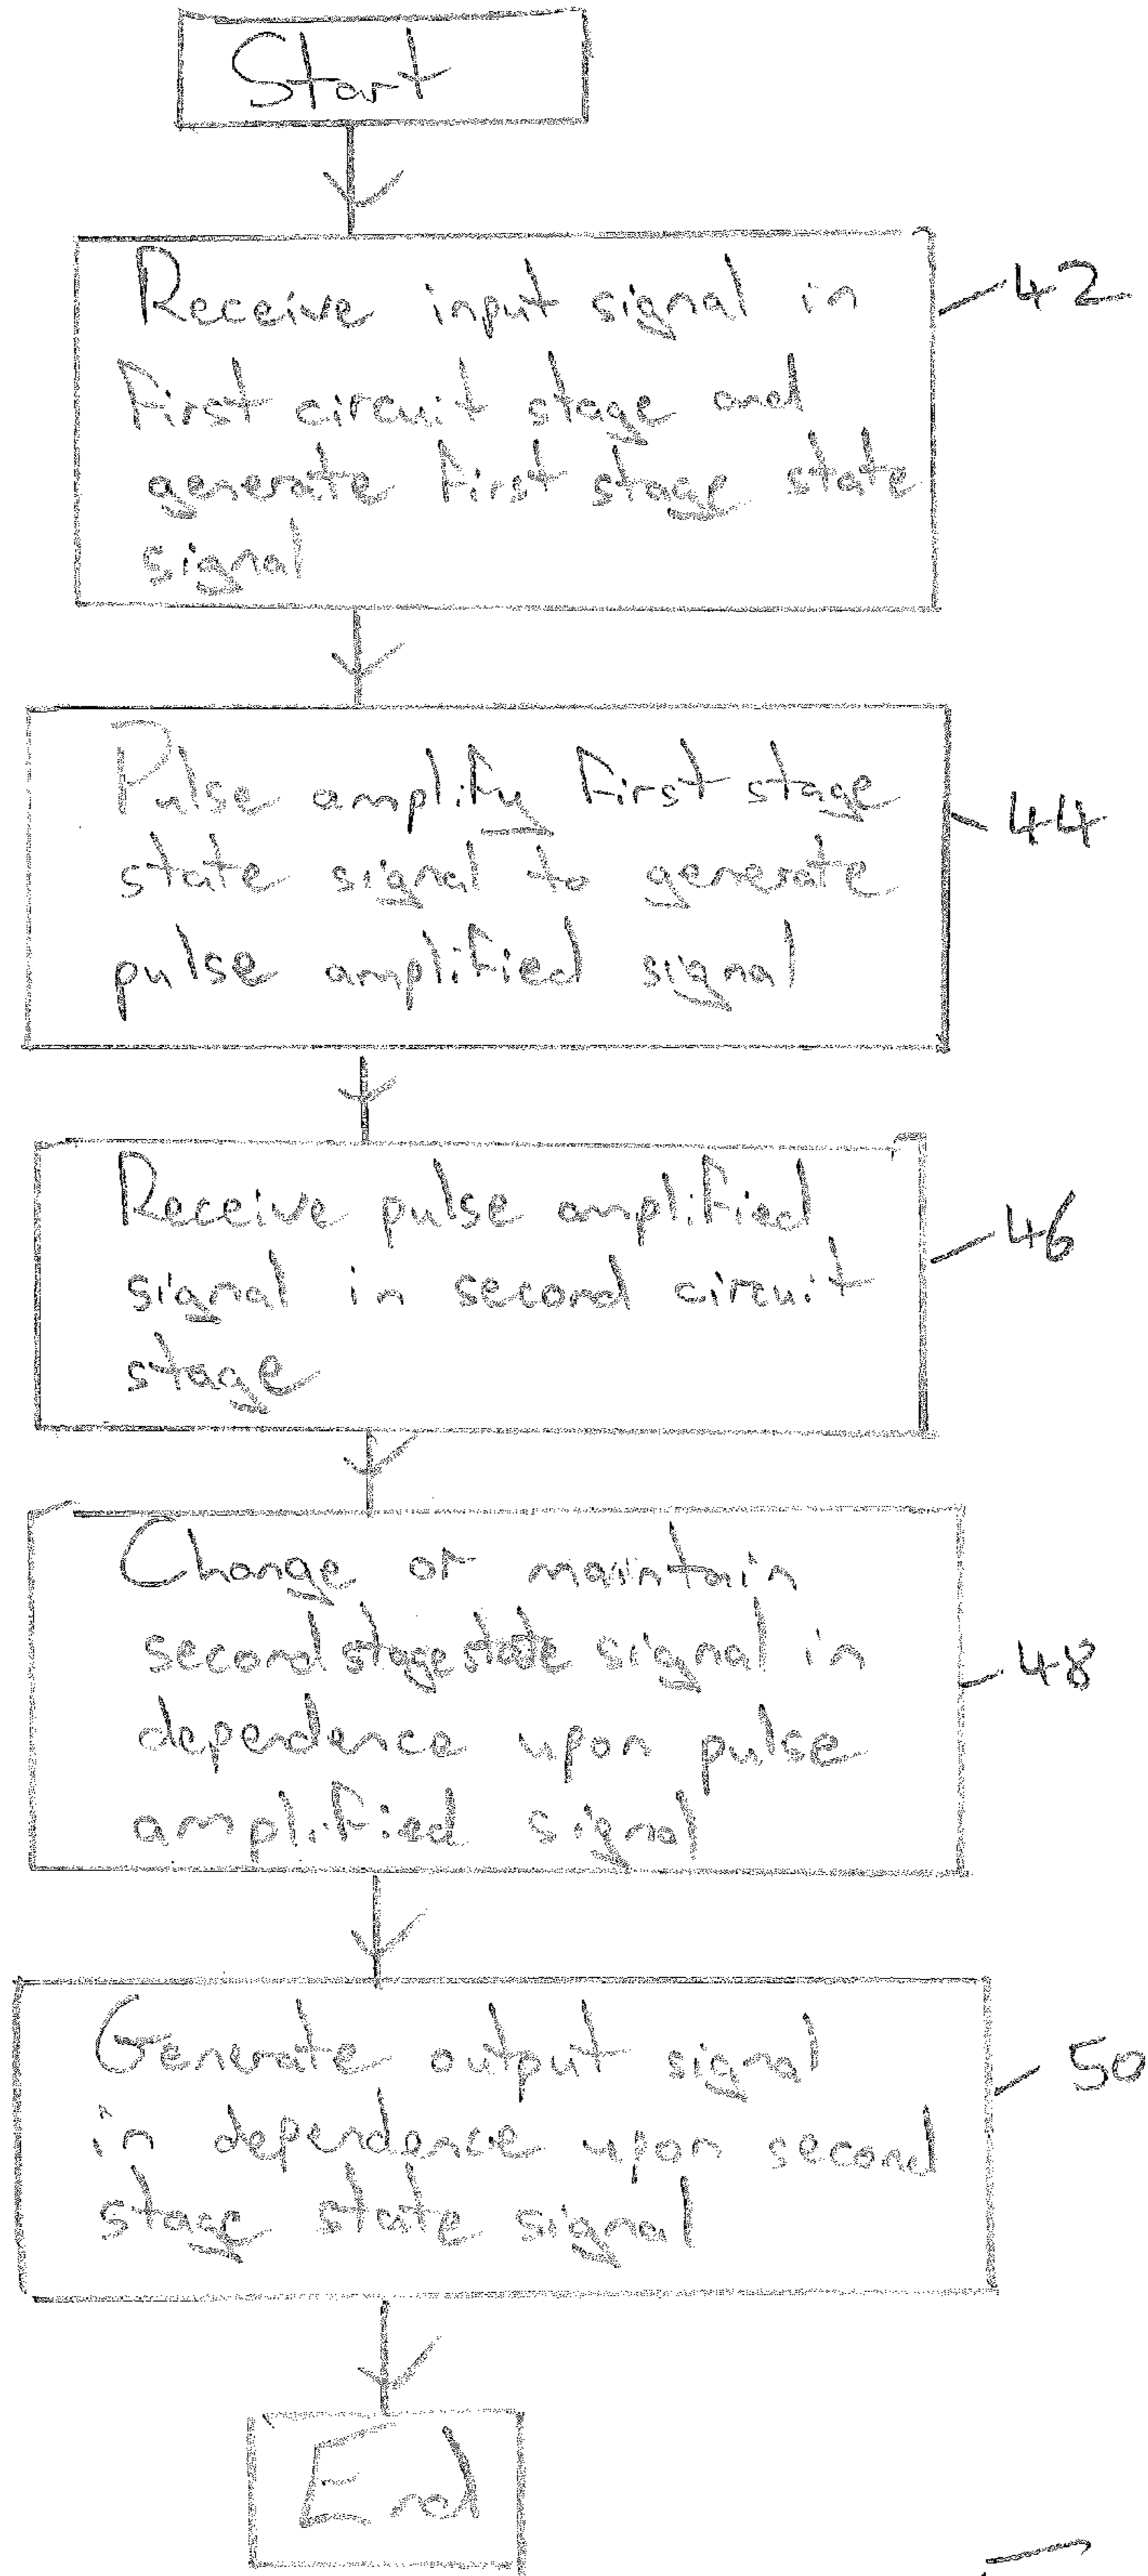 Start
Receive input signal in
first circuit stage and
generate first stage state
signal
42
Pulse amplify first stage
state signal to generate
pulse amplified signal
44
Receive pulse amplified
signal in second circuit
stage
46
Change or maintain
second stage state signal in
dependence upon pulse
amplified signal
48
Generate output signal
in dependence upon second
stage state signal
50
End